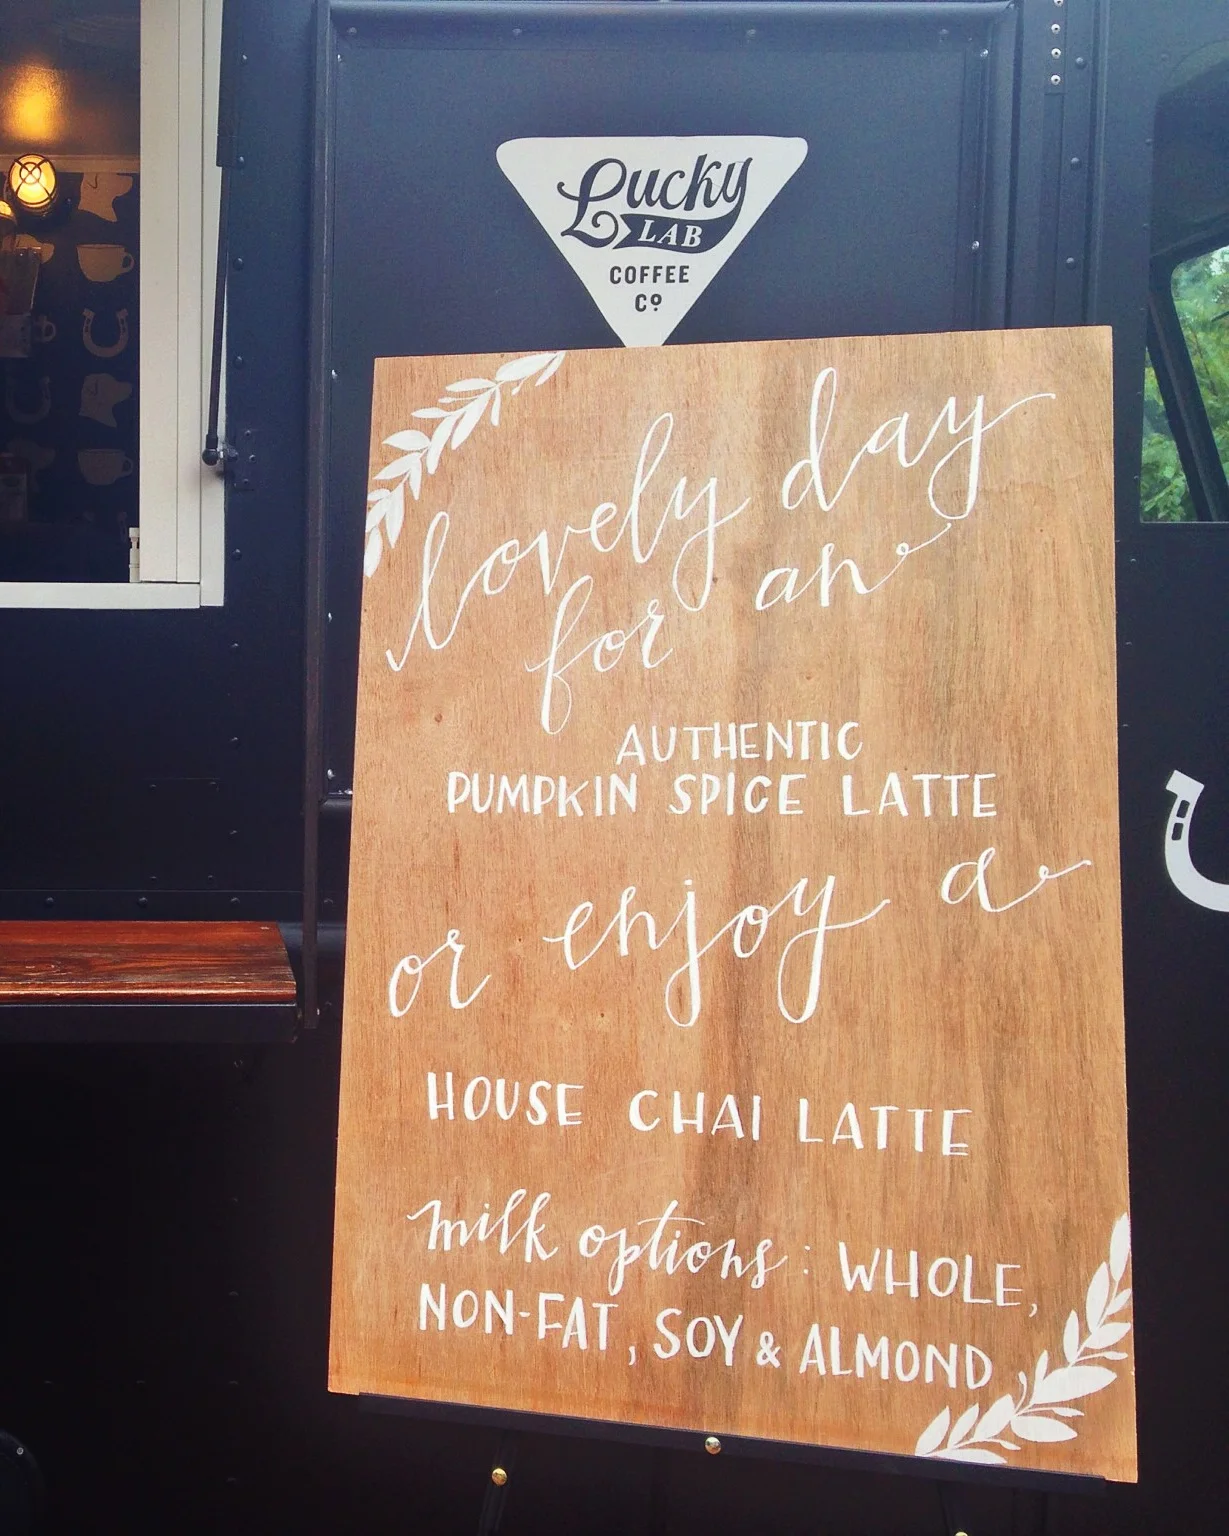 Lucky
LAB
COFFEE
Co
lovely day
for an
AUTHENTIC
PUMPKIN SPICE LATTE
or enjoy a
HOUSE CHAI LATTE
milk options: WHOLE,
NON-FAT, SOY & ALMOND